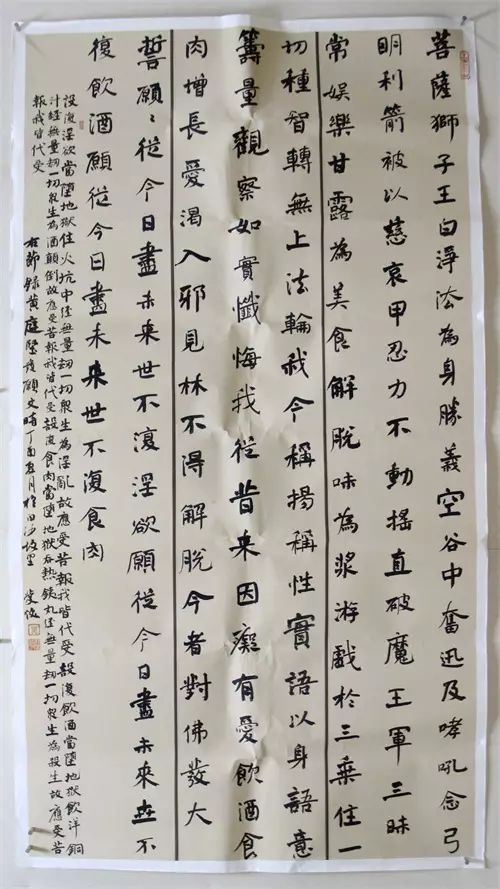 菩薩獅子王白淨法為身勝義空谷中奮迅及哮吼念弓
明利箭被以慈哀甲忍力不動搖直破魔王軍三昧
常娛樂甘露為美食解脫味為漿游戲於三乘住一
切種智轉無上法輪我今稱揚稱性實語以身語意
籌量觀察如實懺悔我從昔來因癡有愛飲酒食
肉增長愛渴入邪見林不得解脫今者對佛發大
誓願〻從今日盡未來世不復淫欲願從今日盡未來世不
復飲酒願從今日盡未來世不復食肉
設復淫欲當墮地獄住火坑中經無量劫一切眾生為淫亂故應受苦報我皆代受設復飲酒當墮地獄飲洋銅
汁經無量劫一切眾生為酒顛倒故應受苦報我皆代受設復食肉當墮地獄吞熱鐵丸經無量劫一切眾生為殺生故應受苦
報我皆代受
右節錄黃庭堅發願文時丁酉夏月於